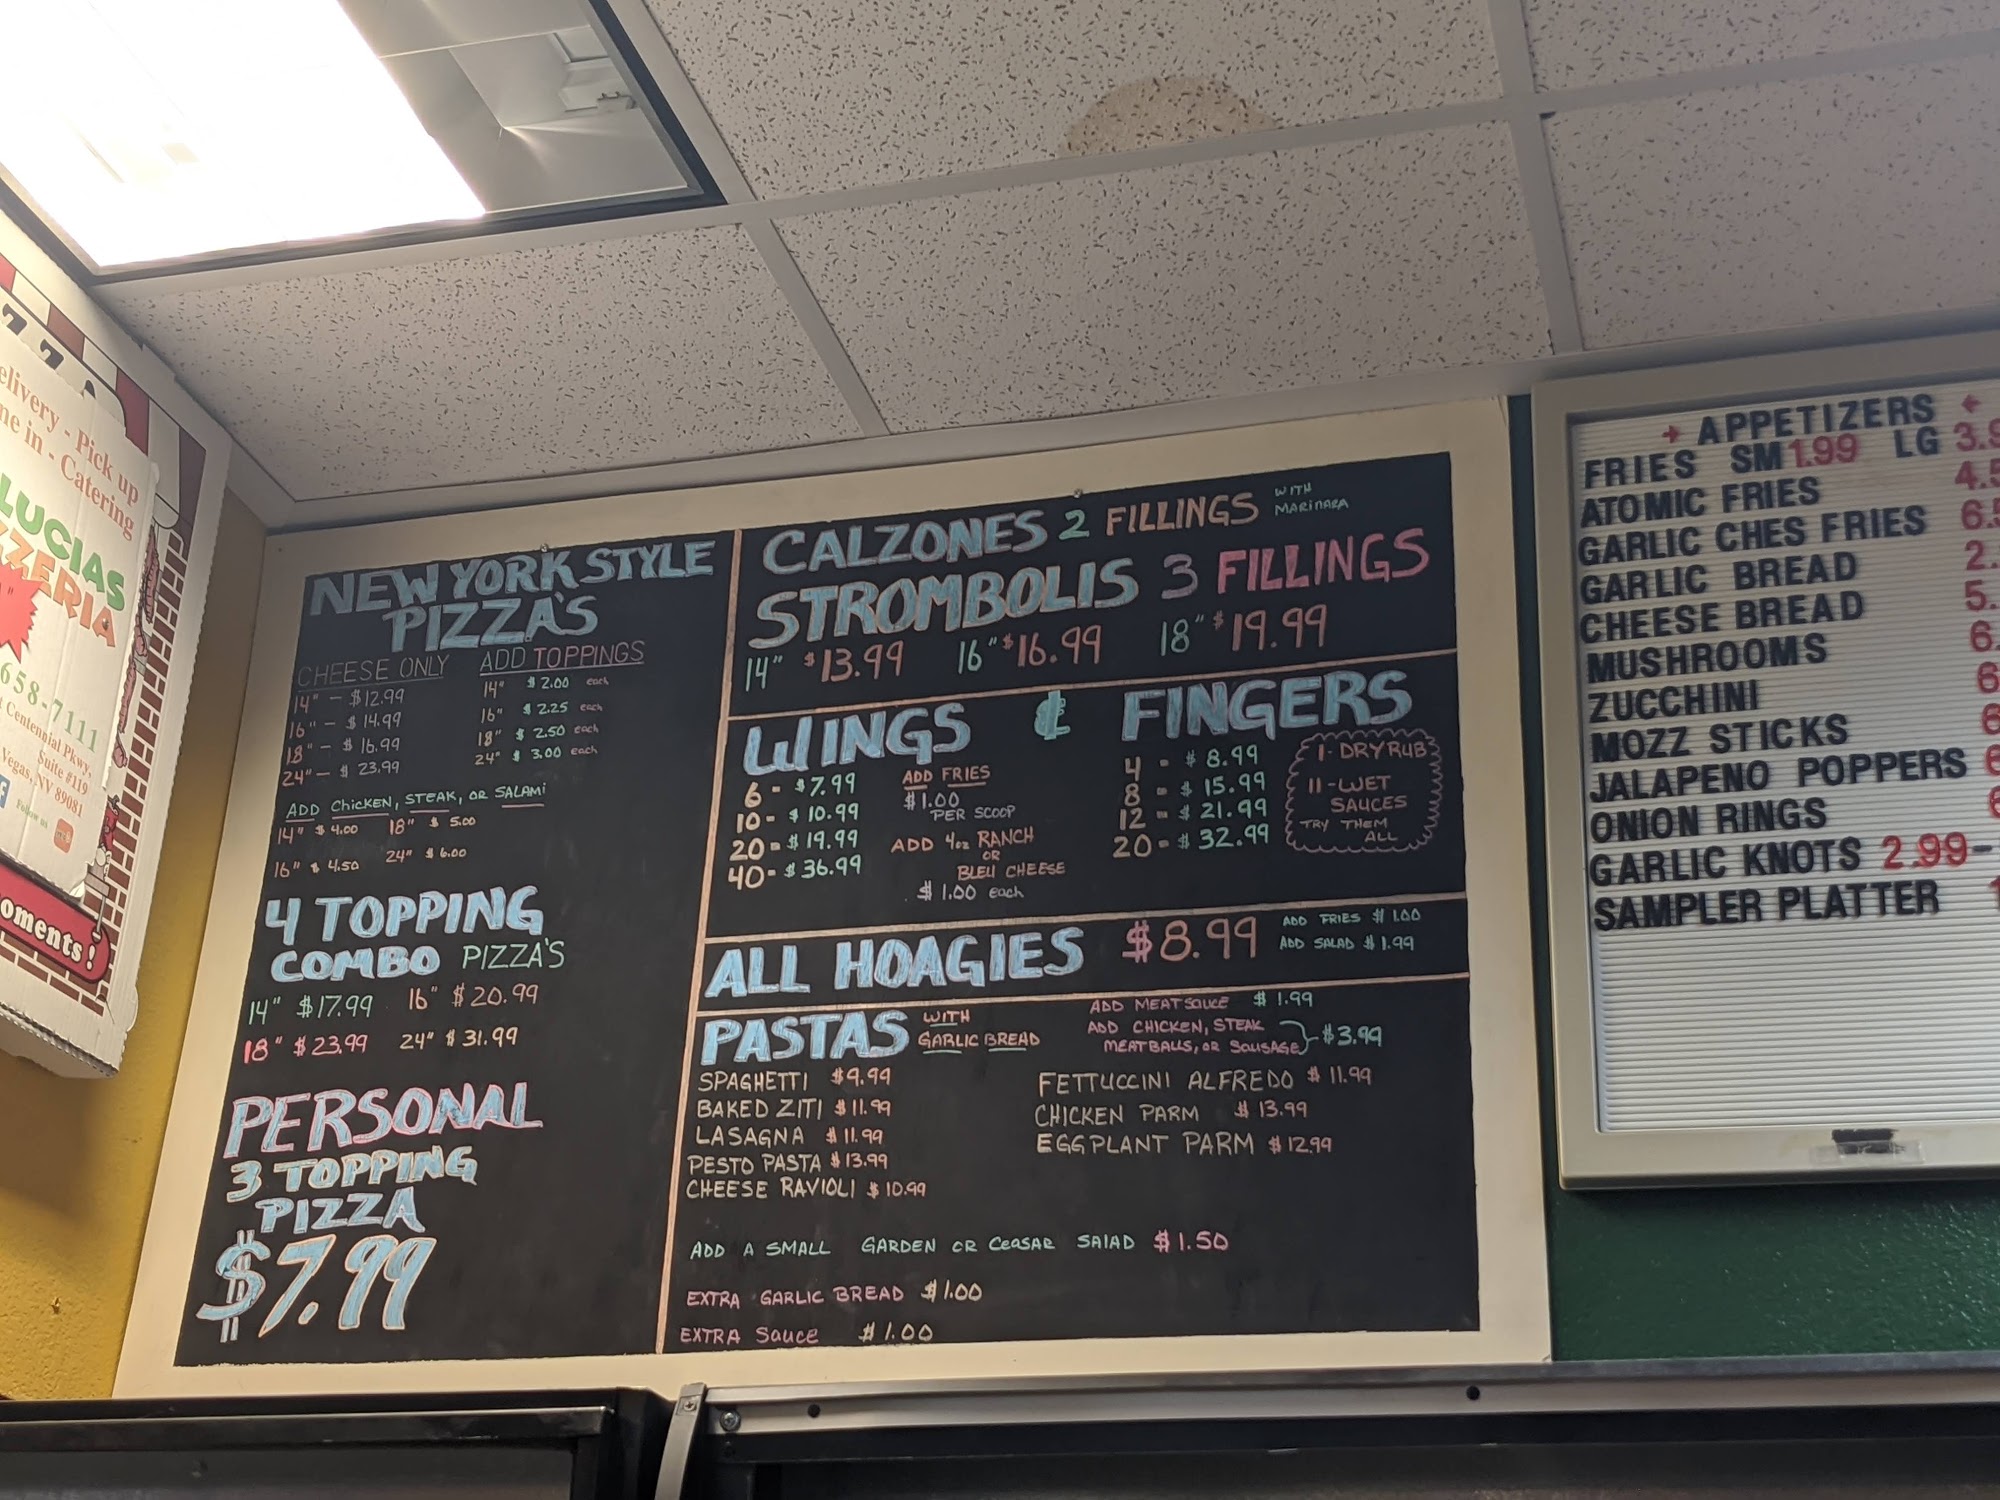 elivery - Pick up
ne in - Catering
LUCIAS
ZZERIA
658-7111
t Centennial Pkwy,
Suite #119
Vegas, NV 89081
Follow us
oments!
NEW YORK STYLE
PIZZA'S
CHEESE ONLY ADD TOPPINGS
14" - $12.99 14" $2.00 each
16" - $14.99 16" $2.25 each
18" - $16.99 18" $2.50 each
24" - $23.99 24" $3.00 each
ADD CHICKEN, STEAK, OR SALAMI
14" $4.00 18" $5.00
16" $4.50 24" $6.00
4 TOPPING
COMBO PIZZA'S
14" $17.99 16" $20.99
18" $23.99 24" $31.99
PERSONAL
3 TOPPING
PIZZA
$7.99
CALZONES 2 FILLINGS WITH
MARINARA
STROMBOLIS 3 FILLINGS
14" $13.99 16" $16.99 18" $19.99
WINGS & FINGERS
6 - $7.99
10 - $10.99
20 - $19.99
40 - $36.99
ADD FRIES
$1.00
PER SCOOP
ADD 4oz RANCH
OR
BLEU CHEESE
$1.00 each
4 - $8.99
8 - $15.99
12 - $21.99
20 - $32.99
1 - DRY RUB
11 - WET
SAUCES
TRY THEM
ALL
ALL HOAGIES $8.99
ADD FRIES $1.00
ADD SALAD $1.99
PASTAS WITH
GARLIC BREAD
ADD MEAT SAUCE $1.99
ADD CHICKEN, STEAK
MEATBALLS, OR SAUSAGE } $3.99
SPAGHETTI $9.99
BAKED ZITI $11.99
LASAGNA $11.99
PESTO PASTA $13.99
CHEESE RAVIOLI $10.99
FETTUCCINI ALFREDO $11.99
CHICKEN PARM $13.99
EGGPLANT PARM $12.99
ADD A SMALL GARDEN OR CEASAR SALAD $1.50
EXTRA GARLIC BREAD $1.00
EXTRA SAUCE $1.00
APPETIZERS
FRIES SM 1.99 LG 3.9
ATOMIC FRIES 4.5
GARLIC CHES FRIES 6.5
GARLIC BREAD 2.
CHEESE BREAD 5.
MUSHROOMS 6.
ZUCCHINI 6
MOZZ STICKS 6
JALAPENO POPPERS 6
ONION RINGS 6
GARLIC KNOTS 2.99-
SAMPLER PLATTER 1